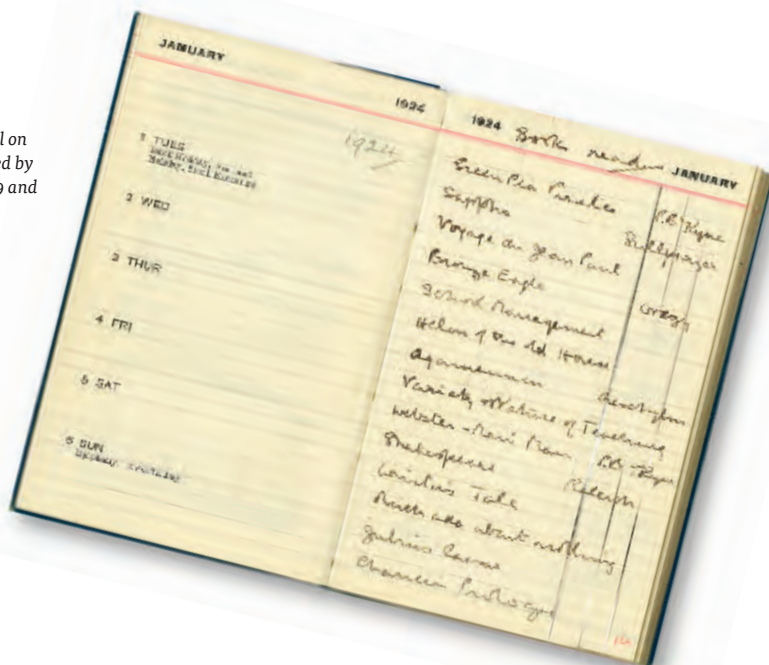 l on
ed by
9 and
JANUARY
1924
1924
1 TUES
2 WED
3 THUR
4 FRI
5 SAT
6 SUN
1924 Books read JANUARY
Green Pea Pirates P.B. Kyne
Sappho Grillparzer
Voyage du Jean Paul
Bronze Eagle
School Management Gregg
Helen of the Old House
Agamemnon Aeschylus
Variety & Nature of Teaching
Webster - Man's Man P.B. Kyne
Shakespeare Raleigh
Winter's Tale
Much ado about nothing
Julius Caesar
Chaucer Prologue